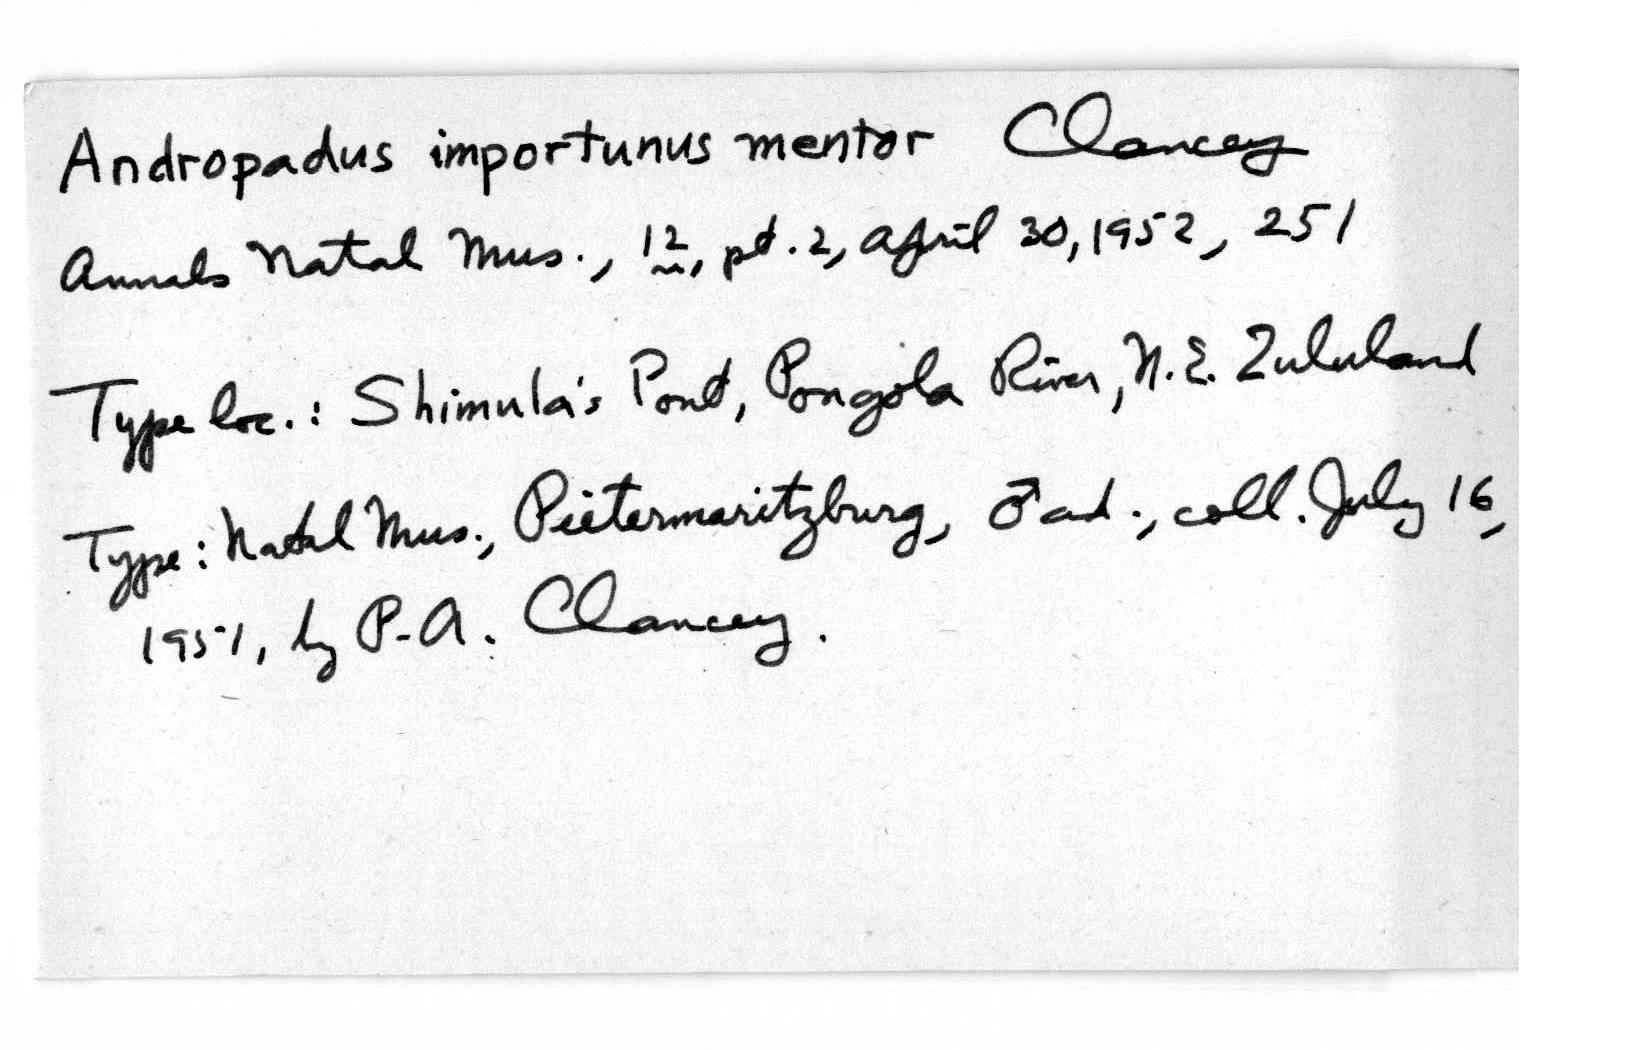 Andropadus importunus mentor Clancey
Annals Natal Mus., 12, pt. 2, April 30, 1952, 251
Type loc.: Shimula's Pont, Pongola River, N.E. Zululand
Type: Natal Mus., Pietermaritzburg, ♂ ad., coll. July 16,
1951, by P.A. Clancey.